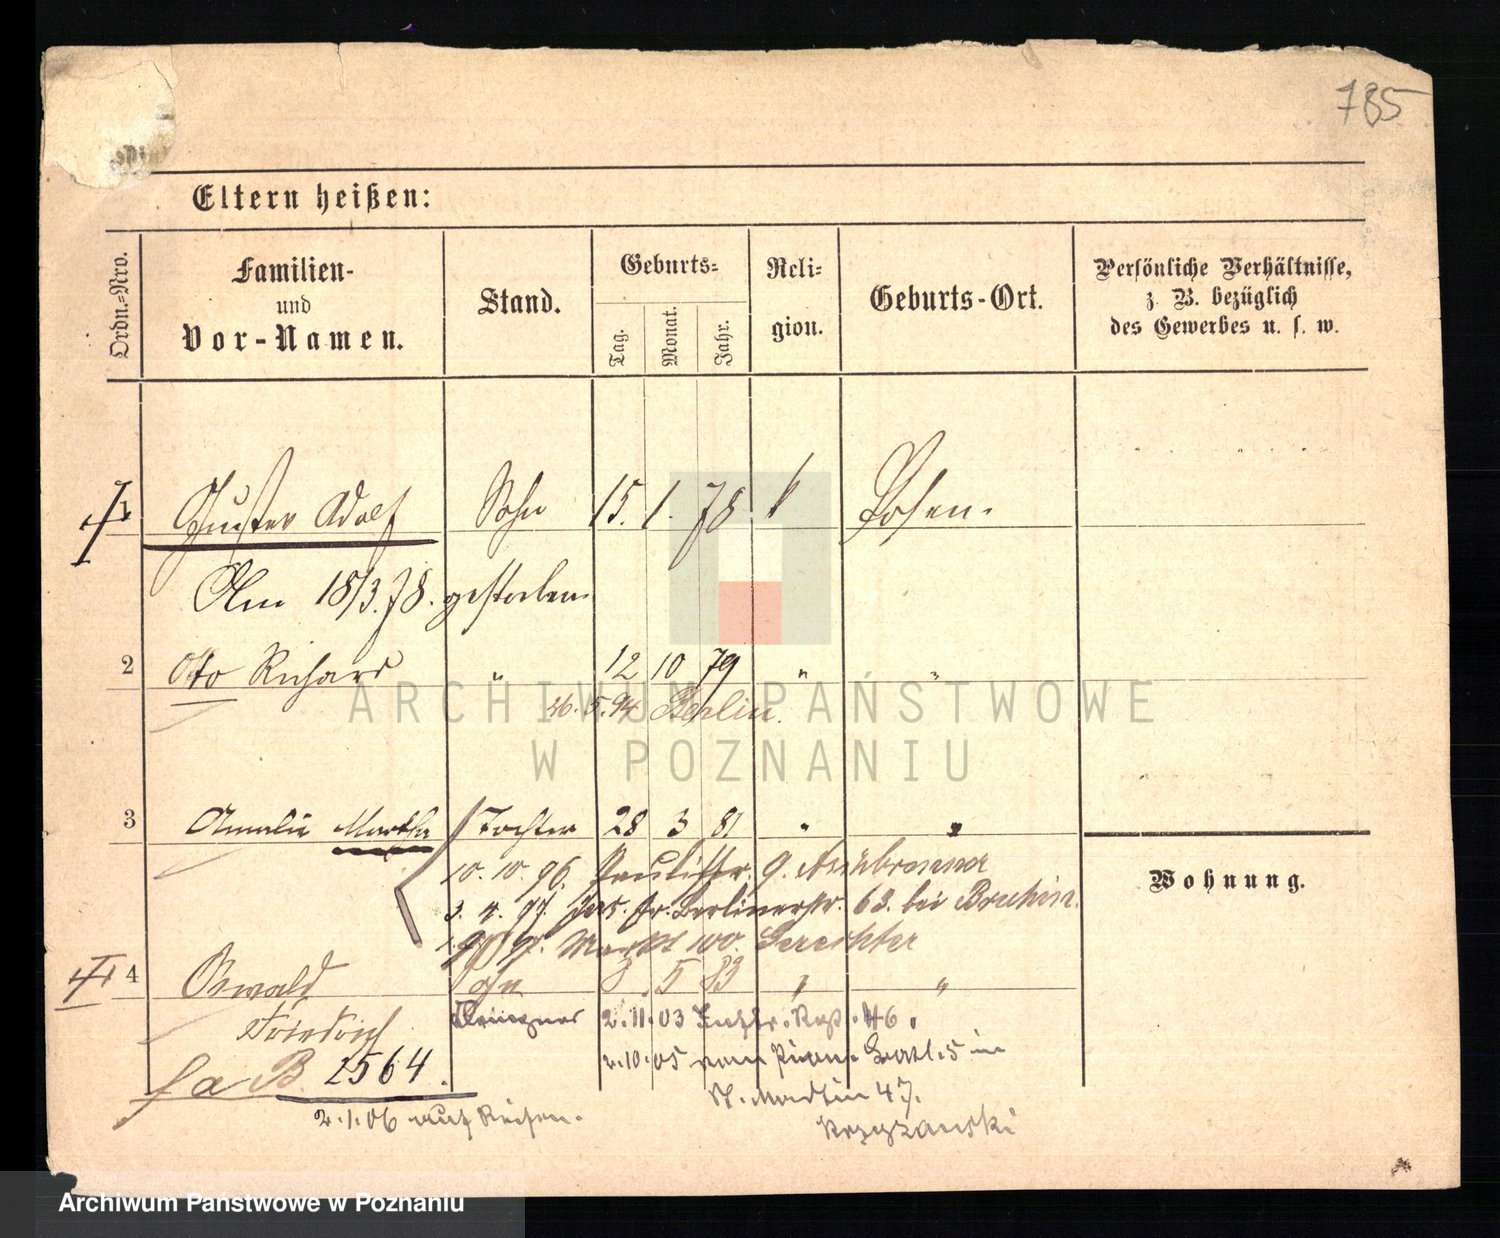 785
Eltern heißen:
Ordn.=Nro.
Familien-
und
Vor-Namen.
Stand.
Geburts=
Tag.
Monat.
Jahr.
Reli=
gion.
Geburts-Ort.
Persönliche Verhältnisse,
z. B. bezüglich
des Gewerbes u. s. w.
1 Gustav Adolf Sohn 15. 1. 78 k Posen.
Am 18/3.78. gestorben
2 Otto Richard " 12 10 79 " "
26. 5. 94 Berlin.
3 Amalie Martha Tochter 28 3 81 " "
10. 10. 96. Paulistr. 9.
3. 4. 97. Berlinerstr. 63. bei
Markt 100.
Wohnung.
4 Oswald Sohn 8. 5 83 " "
Friedrich
2.11.03 46.
fa B 2564.
2.10.05 5 in
St. Martin 47.
2.1.06 auf Reisen.
Krzyzanski
ARCHIWUM PAŃSTWOWE
W POZNANIU
Archiwum Państwowe w Poznaniu